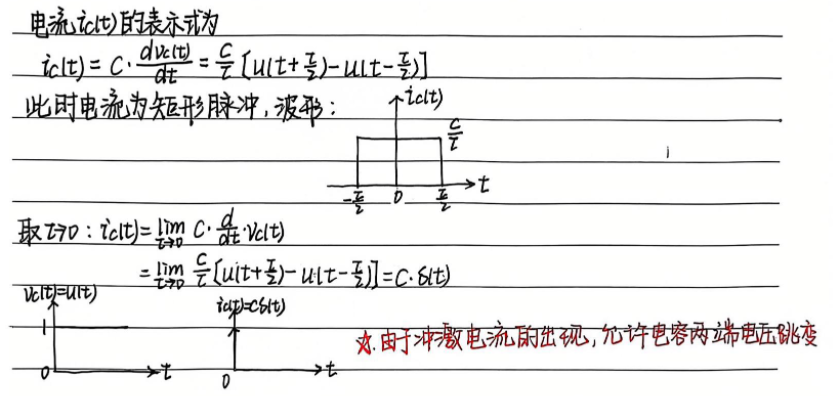 电流ic(t)的表示式为
ic(t) = C·dvc(t)/dt = C/τ [u(t+τ/2)-u(t-τ/2)]
此时电流为矩形脉冲,波形:
ic(t)
C/τ
-τ/2 0 τ/2 t
取τ→0: ic(t)=lim τ→0 C·d/dt·vc(t)
=lim τ→0 C/τ[u(t+τ/2)-u(t-τ/2)]=C·δ(t)
vc(t)=u(t)
1
0 t
ic(t)=Cδ(t)
0 t
☆.由于冲激电流的出现,允许电容两端电压跳变